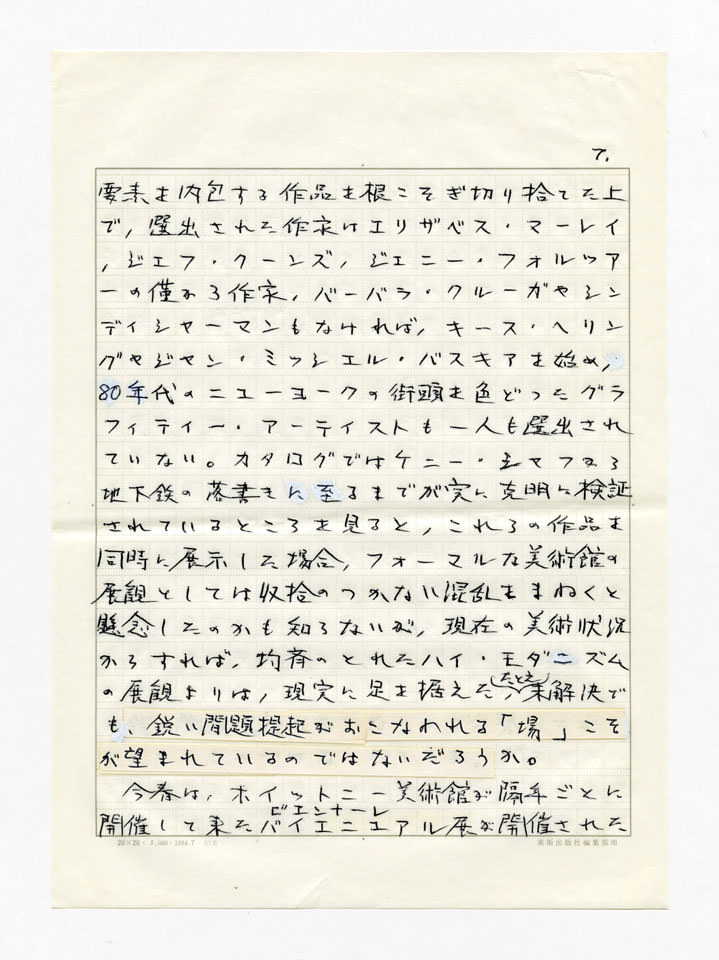 7.
要素を内包する作品を根こそぎ切り捨てた上
で,選出された作家はエリザベス・マーレイ
,ジェフ・クーンズ,ジェニー・フォルツァ
ーの僅かろ作家,バーバラ・クルーガやシン
ディシャーマンもなければ,キース・ヘリン
グやジャン・ミッシェル・バスキアを始め,
80年代のニューヨークの街頭を色どったグラ
フィティイー・アーティストも一人も選出され
ていない。カタログではケニー・シャフの
地下鉄の落書きに至るまでが実に克明に検証
されているところを見ると,これらの作品を
同時に展示した場合,フォーマルな美術館の
展観としては収拾のつかない混乱をまねくと
懸念したのかも知らないが,現在の美術状況
からすれば,均斉のとれたハイ・モダニズム
の展観よりは,現実に足を据えた,たとえ未解決で
も,鋭い問題提起がおこなわれる「場」こそ
が望まれているのではないだろうか。
今春は,ホイットニー美術館が隔年ごとに
ビエンナーレ
開催して来たバイエニエアル展が開催された
20×20・7,000・1984.7
美術出版社編集部用